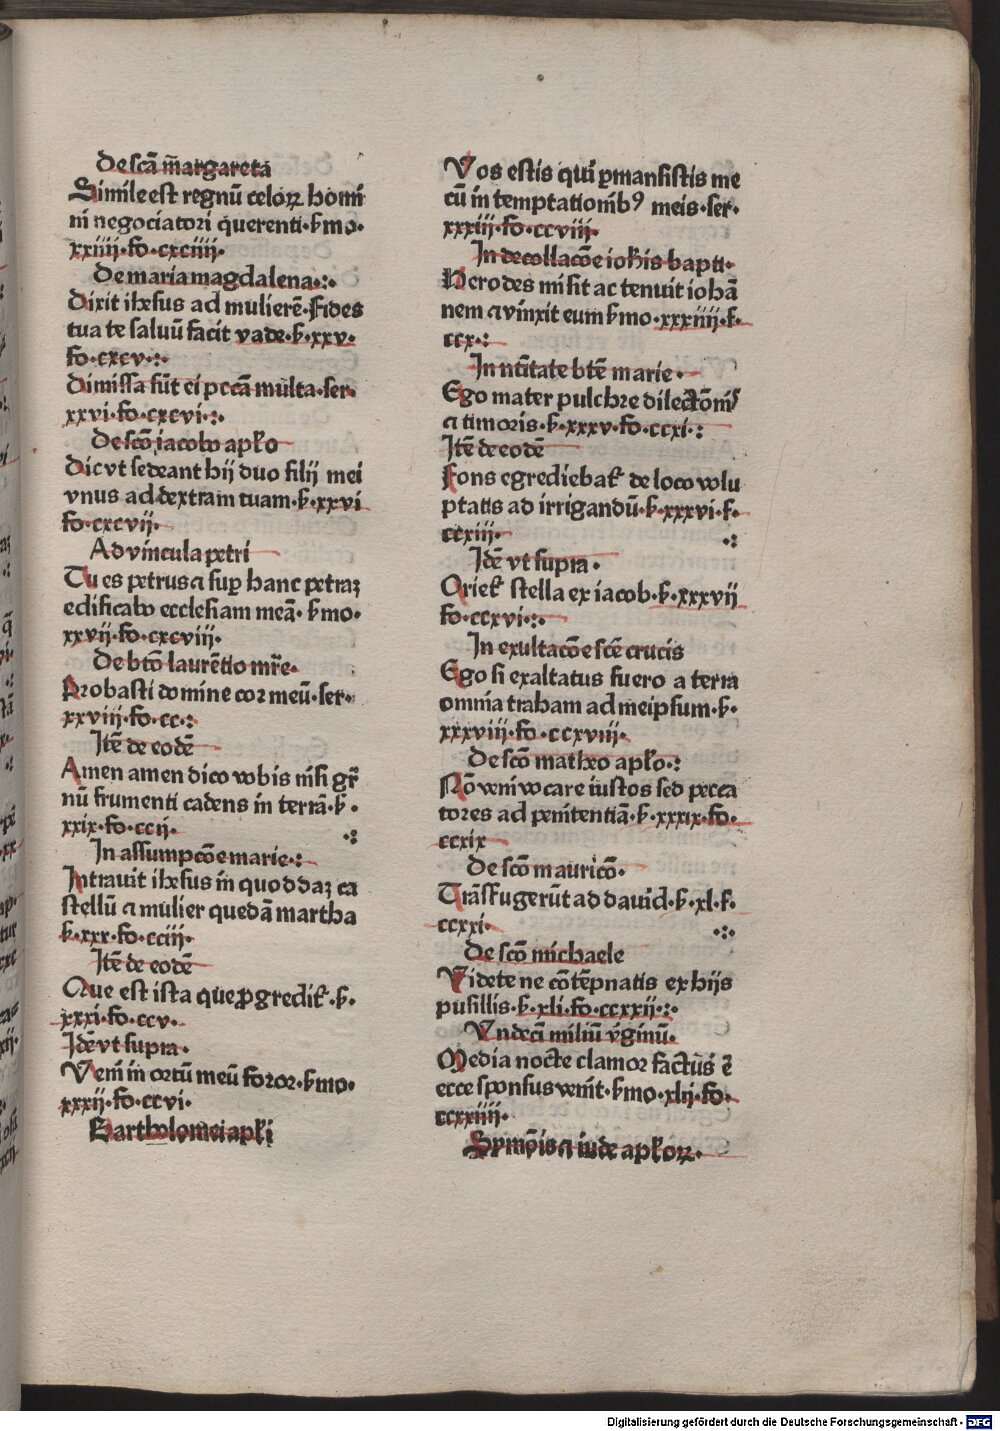 De scā m̄argareta
Simile est regnū celoꝝ homi
ni negociatori querenti·s̄mo·
xxiiii·fo·cxciiii·
De maria magdalena·:·
Dixit ihesus ad mulierē·Fides
tua te saluū facit vade·s̄·xxv·
fo·cxcv·:·
Dimissa sūt ei pccā multa·ser·
xxvi·fo·cxcvi·:·
De scō iacobo apl̄o
Dic vt sedeant hij duo filij mei
vnus ad dextram tuam·s̄·xxvi
fo·cxcvii·
Ad vincula petri
Tu es petrus ⁊ suꝑ hanc petraꝫ
edificabo ecclesiam meā·s̄mo·
xxvii·fo·cxcviii·
De btō laurētio mr̄e·
Probasti domine cor meū·ser·
xxviii·fo·cc·:
Itē de eodē
Amen amen dico vobis nisi gr̄
nū frumenti cadens in terrā·s̄·
xxix·fo·ccii·
·:
In assumpcōe marie·:
Intrauit ihesus in quoddaꝫ ca
stellū ⁊ mulier quedā martha
s̄·xxx·fo·cciii·
Itē de eodē
Que est ista que ꝓgredit̄·s̄·
xxxi·fo·ccv·
Idē vt supra·
Veni in ortū meū soror·s̄mo·
xxxii·fo·ccvi·
Bartholomei apl̄i
Vos estis qui ꝑmansistis me
cū in temptationibꝰ meis·ser·
xxxiii·fo·ccviii·
In decollacōe ioh̄is bapti·
Herodes misit ac tenuit iohā
nem ⁊ vinxit eum s̄mo·xxxiiii·f·
ccx·:
In nt̄itate btē marie·
Ego mater pulchre dilectōnis
⁊ timoris·s̄·xxxv·fo·ccxi·:
Itē de eodē
Fons egrediebat̄ de loco volu
ptatis ad irrigandū·s̄·xxxvi·f·
ccxiii·
·:
Idē vt supra·
Oriet̄ stella ex iacob·s̄·xxxvii
fo·ccxvi·:·
In exultacōe scē crucis
Ego si exaltatus fuero a terra
omnia traham ad meipsum·s̄·
xxxviii·fo·ccxviii·
De scō matheo apl̄o·:
Nō veni vocare iustos sed pecca
tores ad penitentiā·s̄·xxxix·fo·
ccxix
De scō mauricō·
Trāsfugerūt ad dauid·s̄·xl·f·
ccxxi·
·:·
De scō michaele
Videte ne cōtēpnatis ex hijs
pusillis·s̄·xli·fo·ccxxii·:·
Vndeci miliū v̄ginū·
Media nocte clamor factus ē
ecce sponsus venit·s̄mo·xlii·fo·
ccxxiiii·
Symōis ⁊ iude apl̄oꝝ·
Digitalisierung gefördert durch die Deutsche Forschungsgemeinschaft · DFG